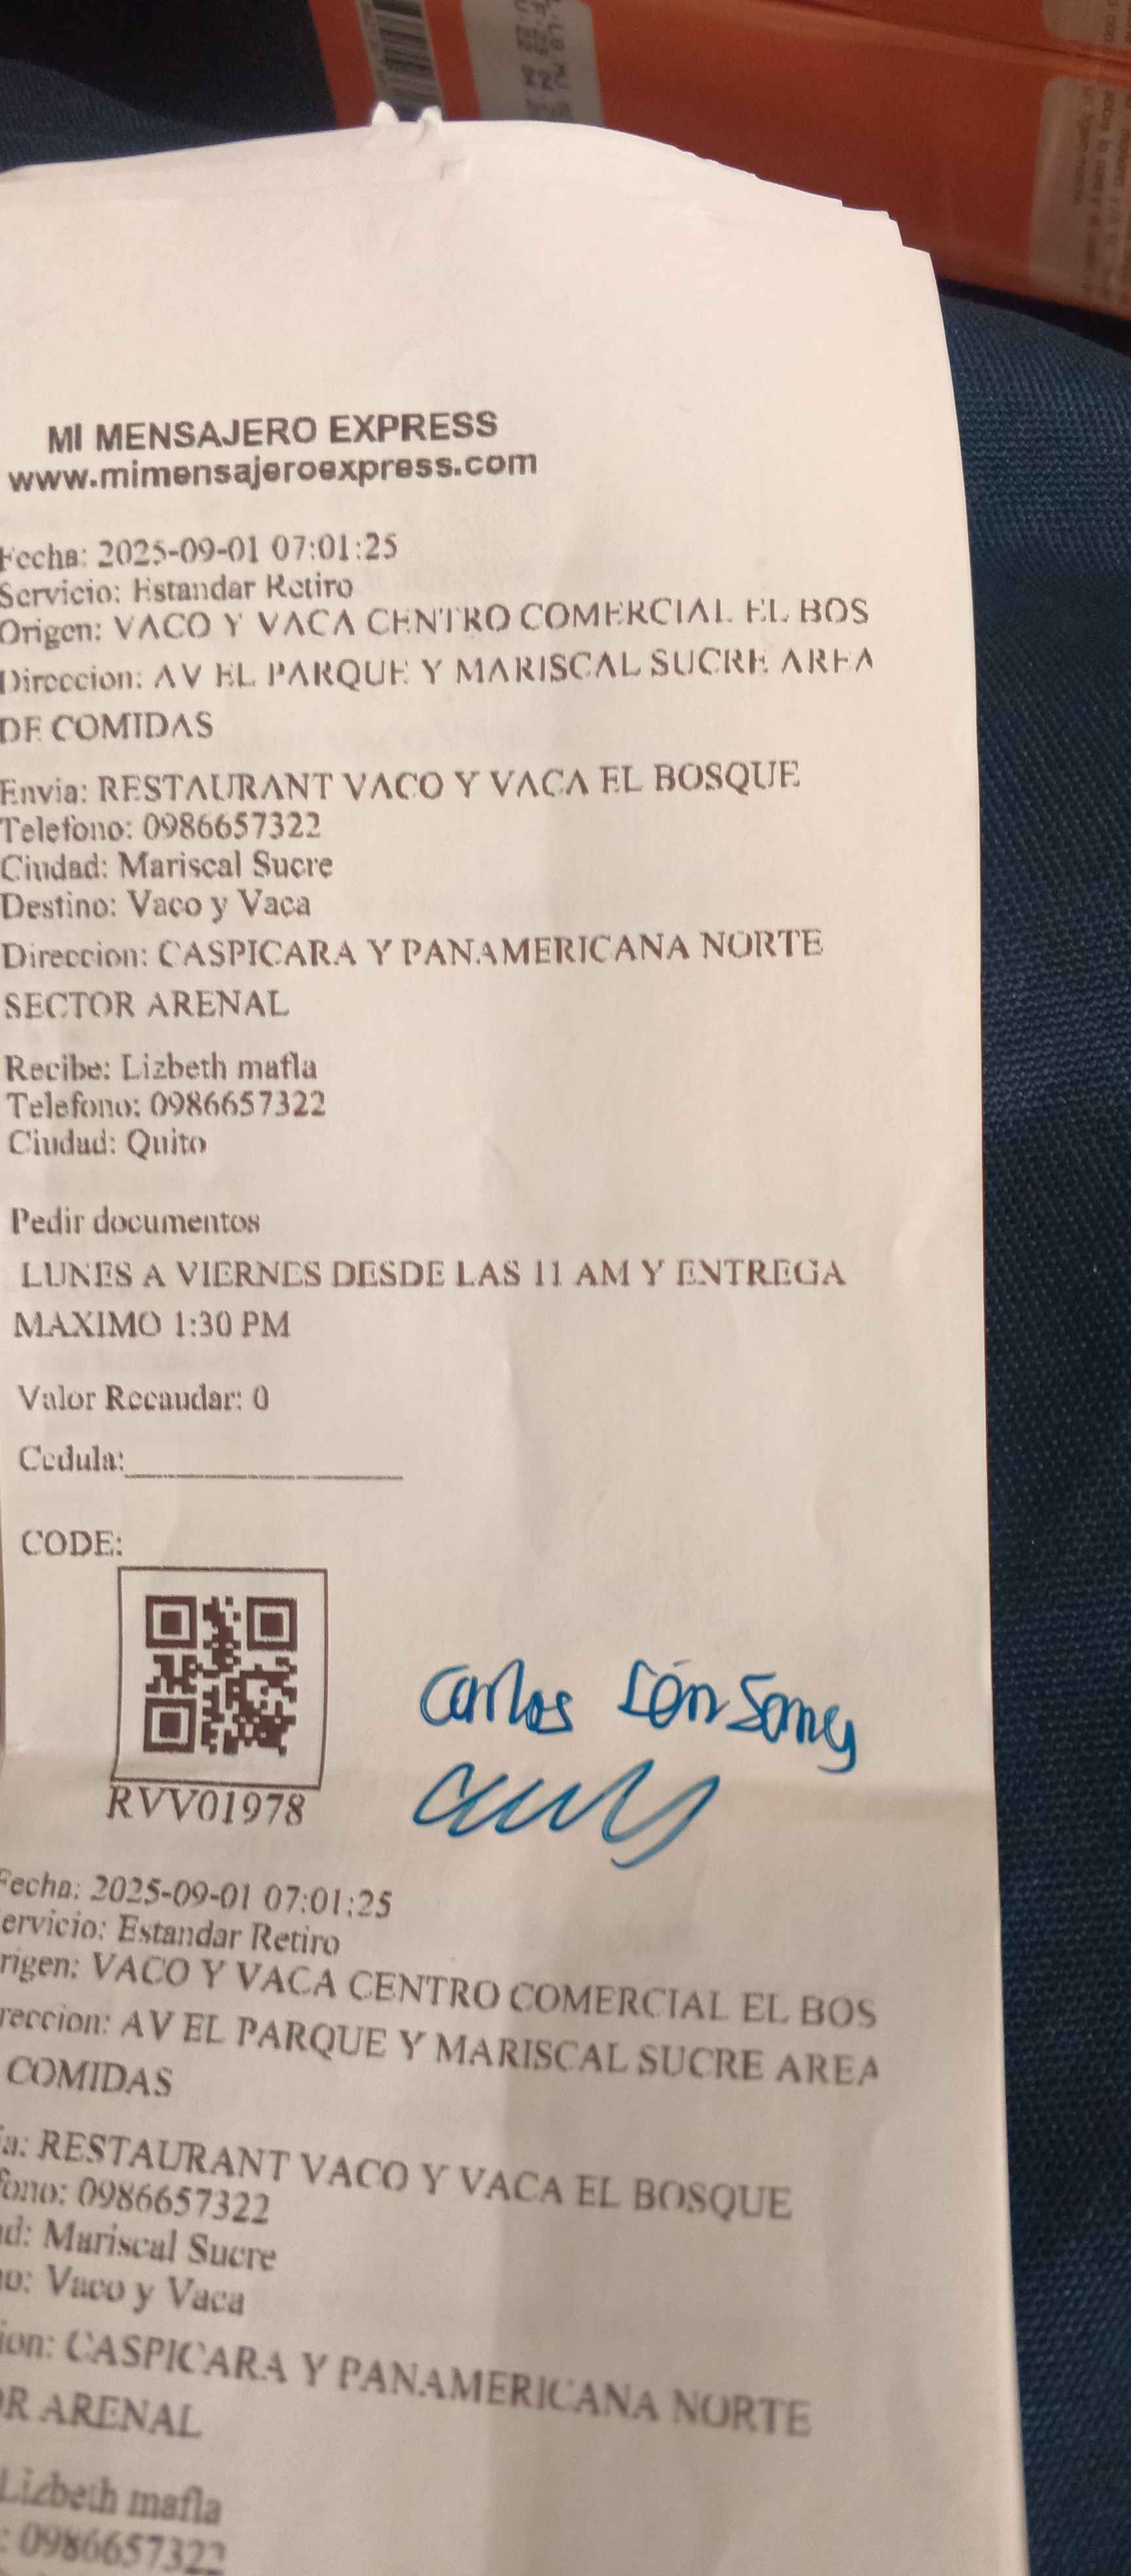 MI MENSAJERO EXPRESS
www.mimensajeroexpress.com
Fecha: 2025-09-01 07:01:25
Servicio: Estandar Retiro
Origen: VACO Y VACA CENTRO COMERCIAL EL BOS
Direccion: AV EL PARQUE Y MARISCAL SUCRE AREA
DE COMIDAS
Envia: RESTAURANT VACO Y VACA EL BOSQUE
Telefono: 0986657322
Ciudad: Mariscal Sucre
Destino: Vaco y Vaca
Direccion: CASPICARA Y PANAMERICANA NORTE
SECTOR ARENAL
Recibe: Lizbeth mafla
Telefono: 0986657322
Ciudad: Quito
Pedir documentos
LUNES A VIERNES DESDE LAS 11 AM Y ENTREGA
MAXIMO 1:30 PM
Valor Recaudar: 0
Cedula:
CODE:
Carlos
RVV01978
Fecha: 2025-09-01 07:01:25
ervicio: Estandar Retiro
rigen: VACO Y VACA CENTRO COMERCIAL EL BOS
reccion: AV EL PARQUE Y MARISCAL SUCRE AREA
COMIDAS
ia: RESTAURANT VACO Y VACA EL BOSQUE
fono: 0986657322
ad: Mariscal Sucre
no: Vaco y Vaca
ion: CASPICARA Y PANAMERICANA NORTE
OR ARENAL
Lizbeth mafla
: 0986657322